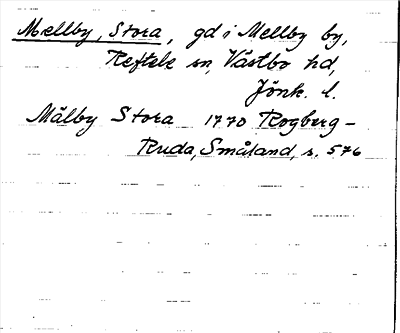 Mellby, Stora, gd i Mellby by,
Reftele sn, Västbo hd,
Jönk. l.
Målby Stora 1770 Rogberg-
Ruda, Småland, s. 576